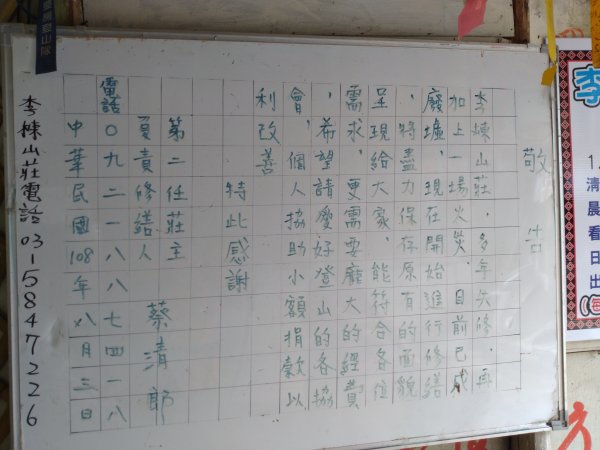 敬告
李棟山莊，多年失修，再
加上一場火災，目前已成
廢墟，現在開始進行修繕
，將盡力保存原有的面貌
呈現給大家，能符合各位
需求，更需要龐大的經費
，希望請愛好登山的各協
會，個人協助小額捐款以
利改善
特此感謝
第二任莊主
負責修繕人 蔡清郎
電話〇九二一八八七四一八
中華民國108年八月三日
李棟山莊電話03-5847226
登山隊
李
1.
清
晨
看
日
出
(每